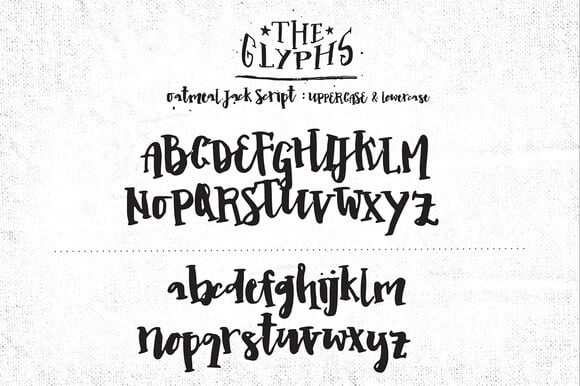 ★THE★
GLYPHS
Oatmeal Jack Script : UPPERCASE & lowercase
ABCDEFGHIJKLM
NOPQRSTUVWXYZ
abcdefghijklm
nopqrstuvwxyz